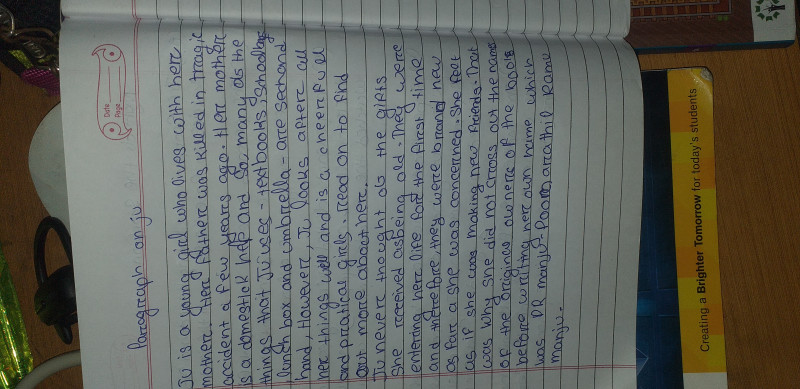 Date
Page
Paragraph on ju
Ju is a young girl who lives with herr
motherr. Herr Fatherr was killed in tragic
accident a few years ago. Herr motherr
is a domestick help and so, many ob the
things that Ju uses - textbooks, Shoolbag
lunch box and umbrrella - are sechand
hand, Howeverr, Ju looks afterr all
herr things well and is a cheerrfull
and pratical girls. read on to find
out more about herr.
Ju neverr thought ob the gifts
She received asbeing old. They were
enterring herr life forr the first time
and therrefore they were brrand new
as farr a she was concerned. She feet
as if she was making new friends. That
was why she did not crross out the name
of the origina ownerr of the book
beforre wrriting herr own name which
was PR manju
Ramu
manju.
Creating a Brighter Tomorrow for today's students